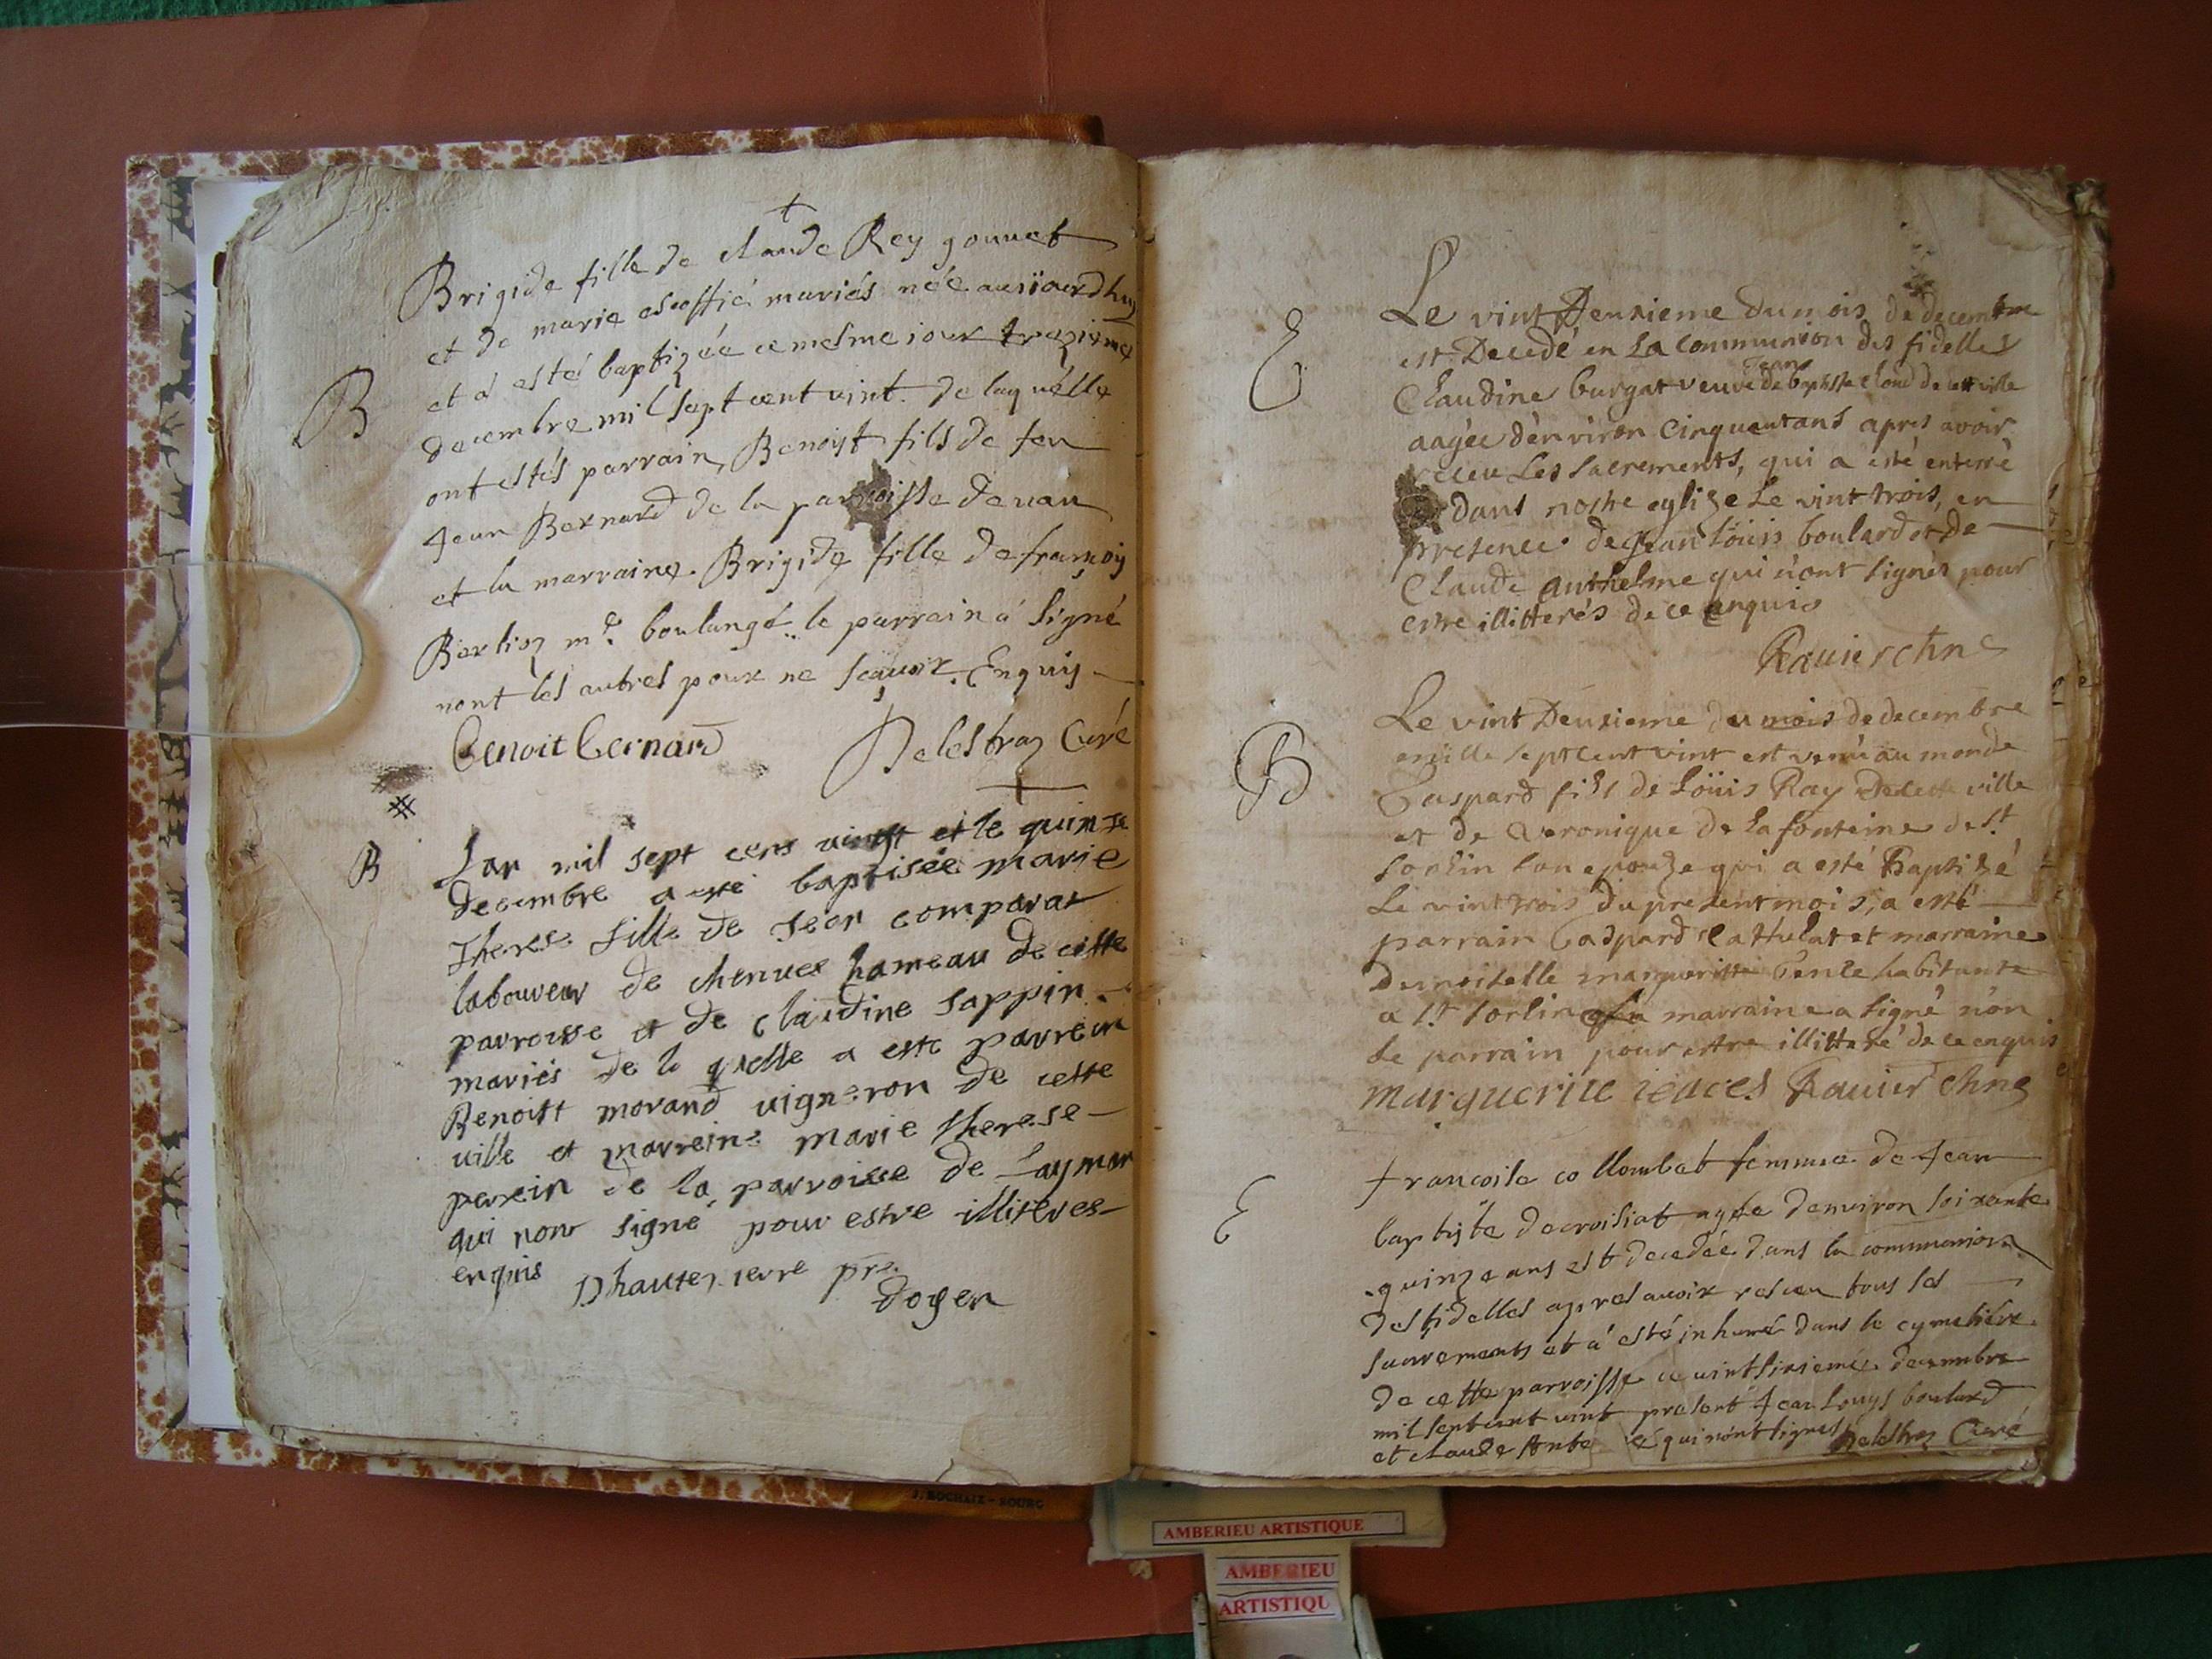 Brigide fille de claude Rey gounet
et de marie escoffié mariés née aujiourdhuy
B
et a esté baptizée ce mesme jour trezième
decembre mil sept cent vint. de laquelle
ont estés parrain, Benoist fils de feu
Jean Bernard de la parroisse de
et la marraine. Brigide fille de françois
Berlioz me. boulangé.. le parrain a signé
nont les autres pour ne sçavoir. Enquis
benoit bernard Delestraz Curé
B
Lan mil sept cens vingt et le quinze
decembre a esté baptisée marie
therese fille de jean comparat
laboureur de chenuex hameau de cette
parroisse et de claudine sappin
mariés de la quelle a esté parrein
Benoist morand vigneron de cette
ville et marreine marie therese
perrein de la parroisse de
qui nont signé pour estre illiteres
enquis Dhauteuierre pre.
doyen
E
Le vint Deuxieme du mois de decembre
est Decedé en La communion des fidelles
Claudine burgat veuve de Jean baptiste de cette ville
aagée d'environ cinquantans apres avoir
receu Les sacrements, qui a esté enterré
dans nostre eglize Le vint trois, en
presence de Jean Loüis boulard et de
Claude Anthelme qui n'ont signés pour
estre illitterés de ce enquis
Ravier chne
B
Le vint Deuxieme du mois de decembre
mille sept cent vint est venu au monde
Gaspard fils de Loüis Ray de cette ville
et de Veronique de La fonteine de st
sorlin son epouze qui a esté Baptizé
Le vint trois du present mois, a esté
parrain Gaspard et marraine
Demoiselle margueritte habitante
a st sorlin La marraine a signé n'on
Le parrain pour estre illitteré de ce enquis
Marguerite Ravier chne
E
francoise collombet femme de Jean
baptiste decroisiat agée denviron soixante
quinze ans est decedée dans la communion
des fidelles apres avoir resceu tous les
sacrements et a esté inhumé dans le cymetiere
de cette parroisse ce vint sixieme decembre
mil sept cent vint present Jean Louys boulard
et claude Ante qui n'ont signes Delestraz Curé
J. ROCHAIX - BOURG
AMBERIEU ARTISTIQUE
AMBERIEU
ARTISTIQU